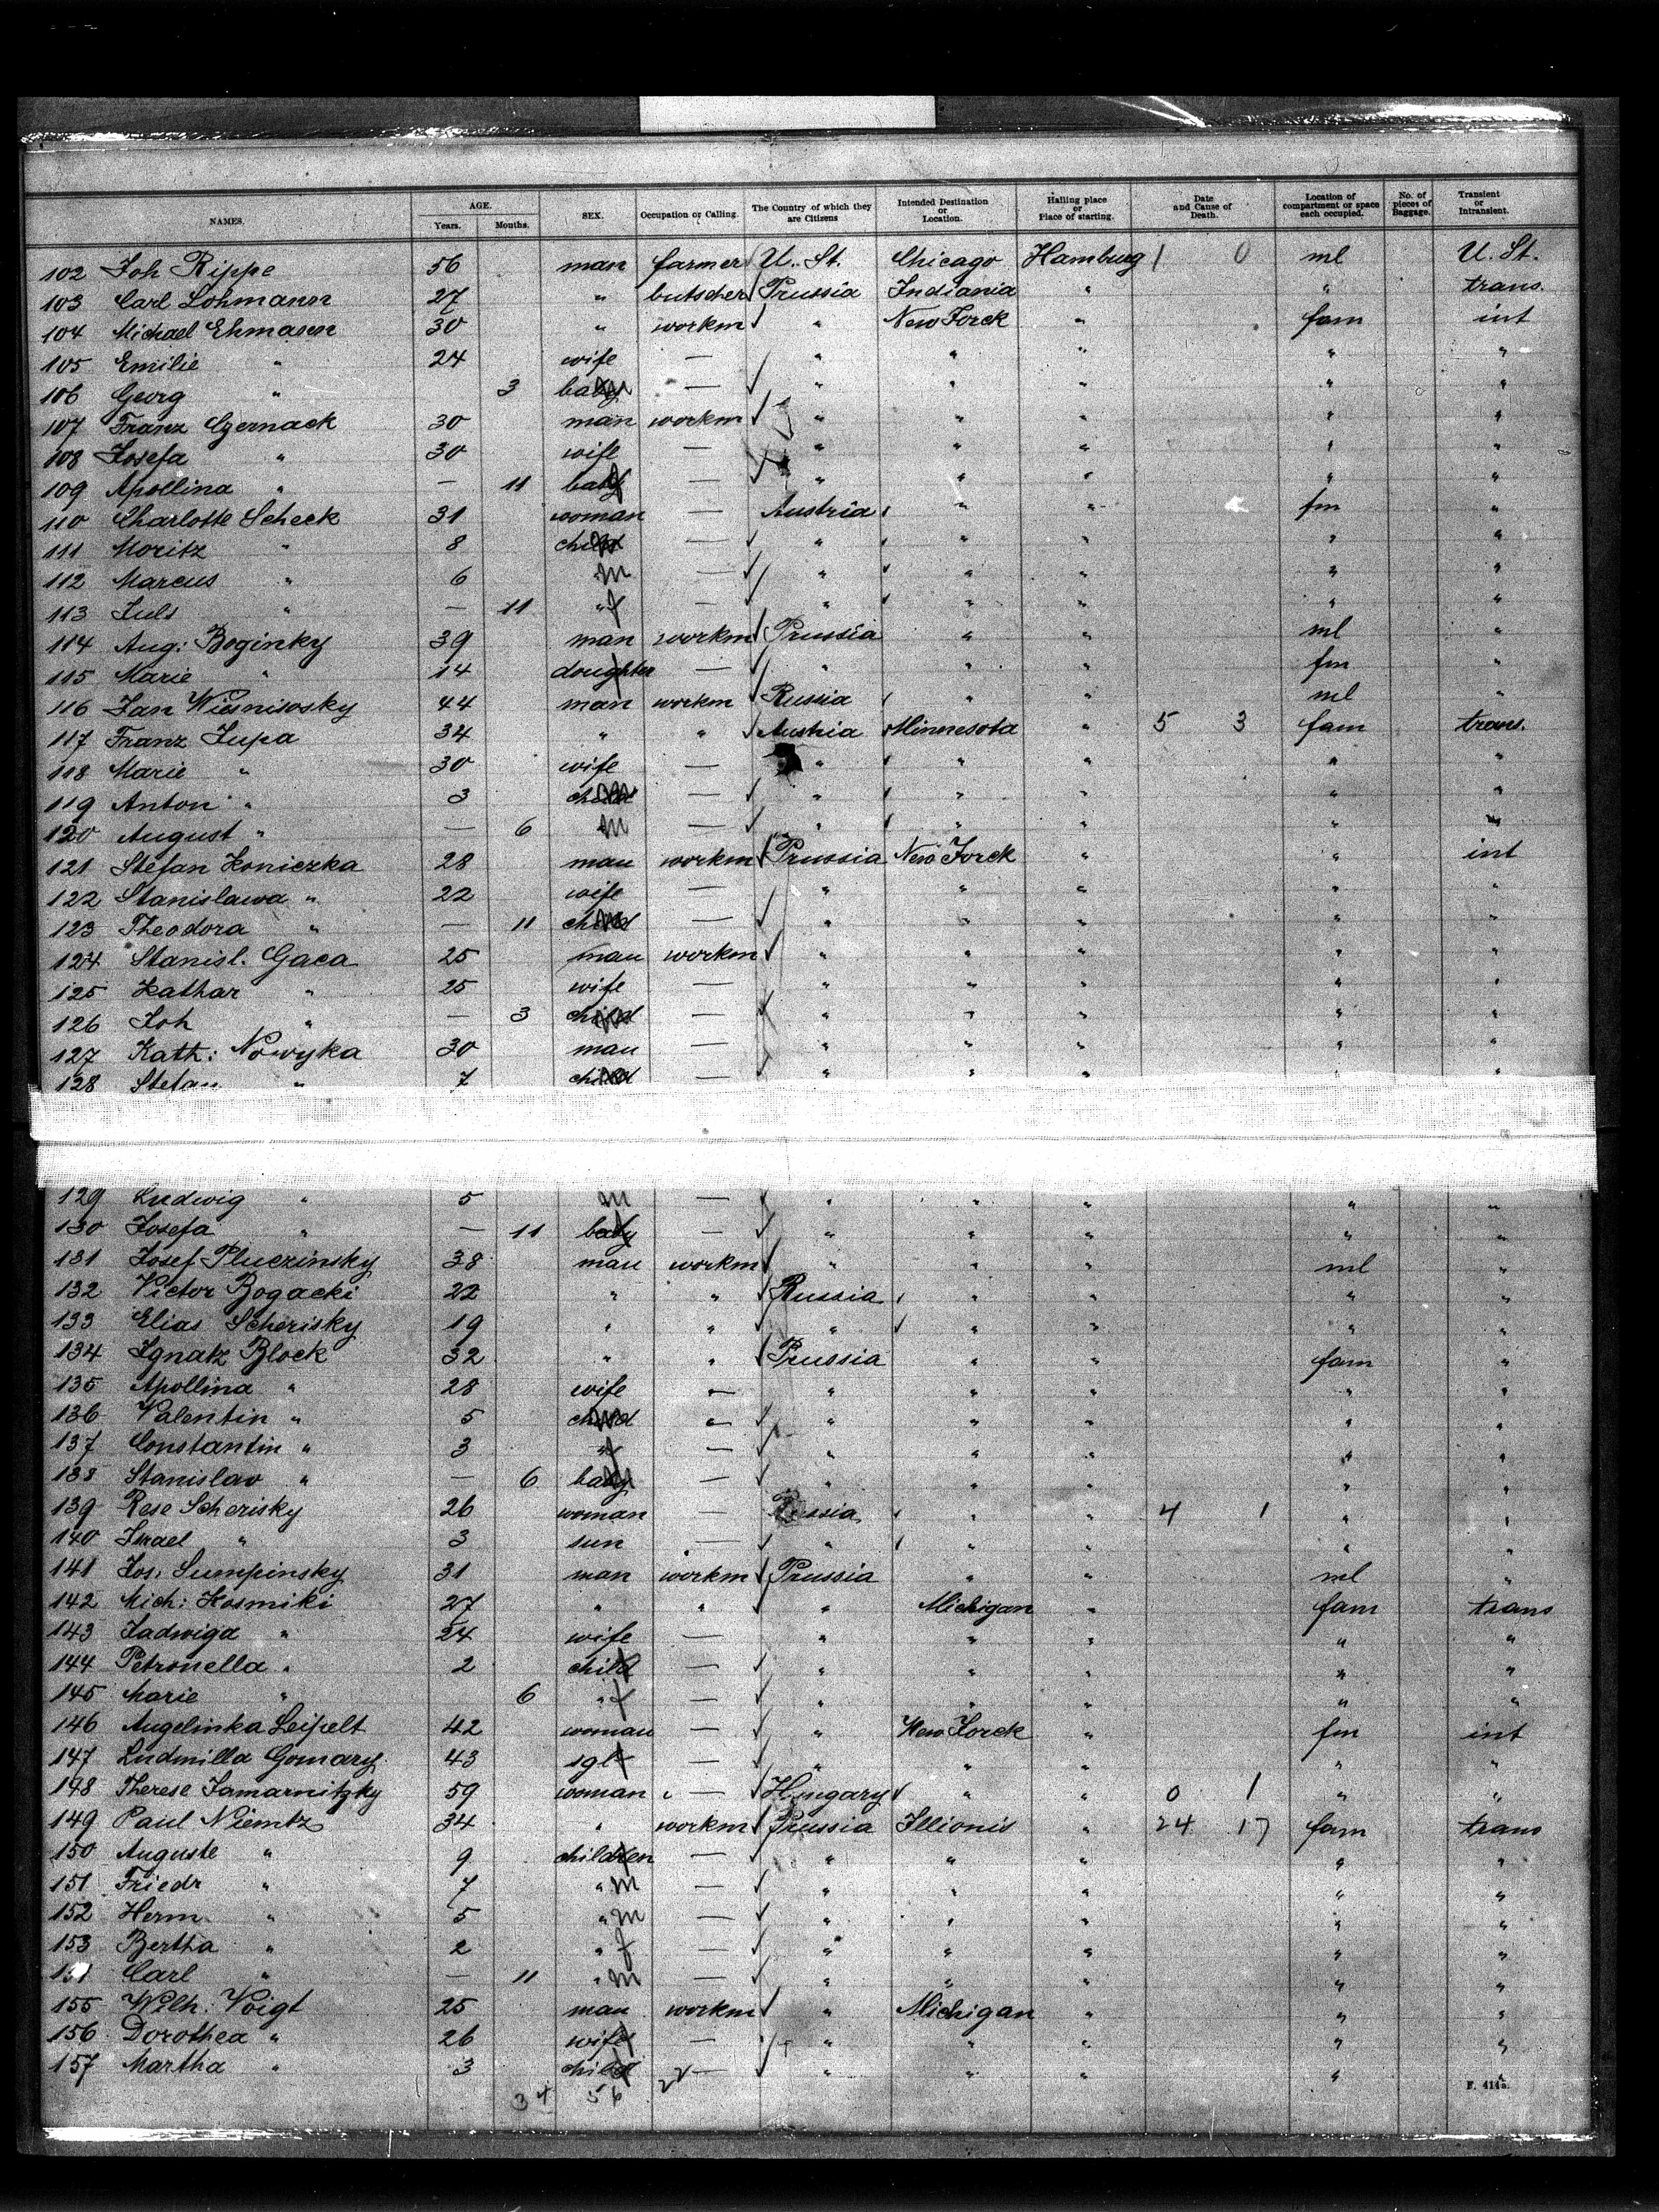 NAMES. AGE. Years. Months. SEX. Occupation or Calling. The Country of which they are Citizens Intended Destination or Location. Hailing place or Place of starting. Date and Cause of Death. Location of compartment or space each occupied. No. of pieces of Baggage. Transient or Intransient.
102 Joh Rippe 56 man farmer U. St. Chicago Hamburg 1 0 ml U. St.
103 Carl Lohmann 27 " butscher Prussia Indiania " " trans.
104 Michael Ehmann 30 " workm " New Jorck " fam int
105 Emilie " 24 wife — " " " " "
106 Georg " 3 baby m — " " " " "
107 Franz Czernack 30 man workm " " " " "
108 Josefa " 30 wife — " " " " "
109 Apollina " — 11 baby f — " " " " "
110 Charlotte Scheck 31 woman — Austria " " fm "
111 Moritz " 8 child m — " " " " "
112 Marcus " 6 " m — " " " " "
113 Juls " — 11 " f — " " " " "
114 Aug: Boginky 39 man workm Prussia " " ml "
115 Marie " 14 doughter f — " " " fm "
116 Jan Wisnisosky 44 man workm Russia " " ml "
117 Franz Jupa 34 " " Austria Minnesota " 5 3 fam trans.
118 Marie " 30 wife — " " " " "
119 Anton " 3 child m — " " " " "
120 August " — 6 " m — " " " " "
121 Stefan Koniczka 28 man workm Prussia New Jorck " " int
122 Stanislawa " 22 wife — " " " " "
123 Theodora " — 11 child — " " " " "
124 Stanisl. Gaca 25 man workm " " " " "
125 Kathar " 25 wife — " " " " "
126 Joh " — 3 child m — " " " " "
127 Kath: Nowyka 30 man " " " " "
128 Stefan " 7 child m — " " " " "
129 Ludwig " 5 m — " " " " "
130 Josefa " — 11 baby f — " " " " "
131 Josef Pluczinsky 38 man workm " " " ml "
132 Victor Bogacki 22 " " Russia " " " "
133 Elias Scherisky 19 " " " " " " "
134 Ignatz Block 32 " " Prussia " " fam "
135 Apollina " 28 wife — " " " " "
136 Valentin " 5 child m — " " " " "
137 Constantin " 3 " f — " " " " "
138 Stanislav " — 6 baby — " " " " "
139 Rese Scherisky 26 woman — Russia " " 4 1 " "
140 Israel " 3 sun — " " " " "
141 Jos: Sumpinsky 31 man workm Prussia " " ml "
142 Mich: Kosmiki 27 " " " Michigan " fam trans
143 Jadwiga " 24 wife — " " " " "
144 Petronella " 2 child f — " " " " "
145 Marie " 6 " f — " " " " "
146 Augelinka Leipelt 42 woman — " New Jorck " fm int
147 Ludmilla Gomary 43 sgl f — " " " " "
148 Therese Jamarnitzky 59 woman — Hungary " " 0 1 " "
149 Paul Niemtz 34 " workm Prussia Illionis " 24 17 fam trans
150 Auguste " 9 children f — " " " " "
151 Friedr " 7 " m — " " " " "
152 Herm. " 5 " m — " " " " "
153 Bertha " 2 " f — " " " " "
Carl " — 11 " m — " " " " "
155 Wilh: Voigt 25 man workm " Michigan " " "
156 Dorothea " 26 wife — " " " " "
157 Martha " 3 child f — " " " " "
34 56 22
F. 414a.